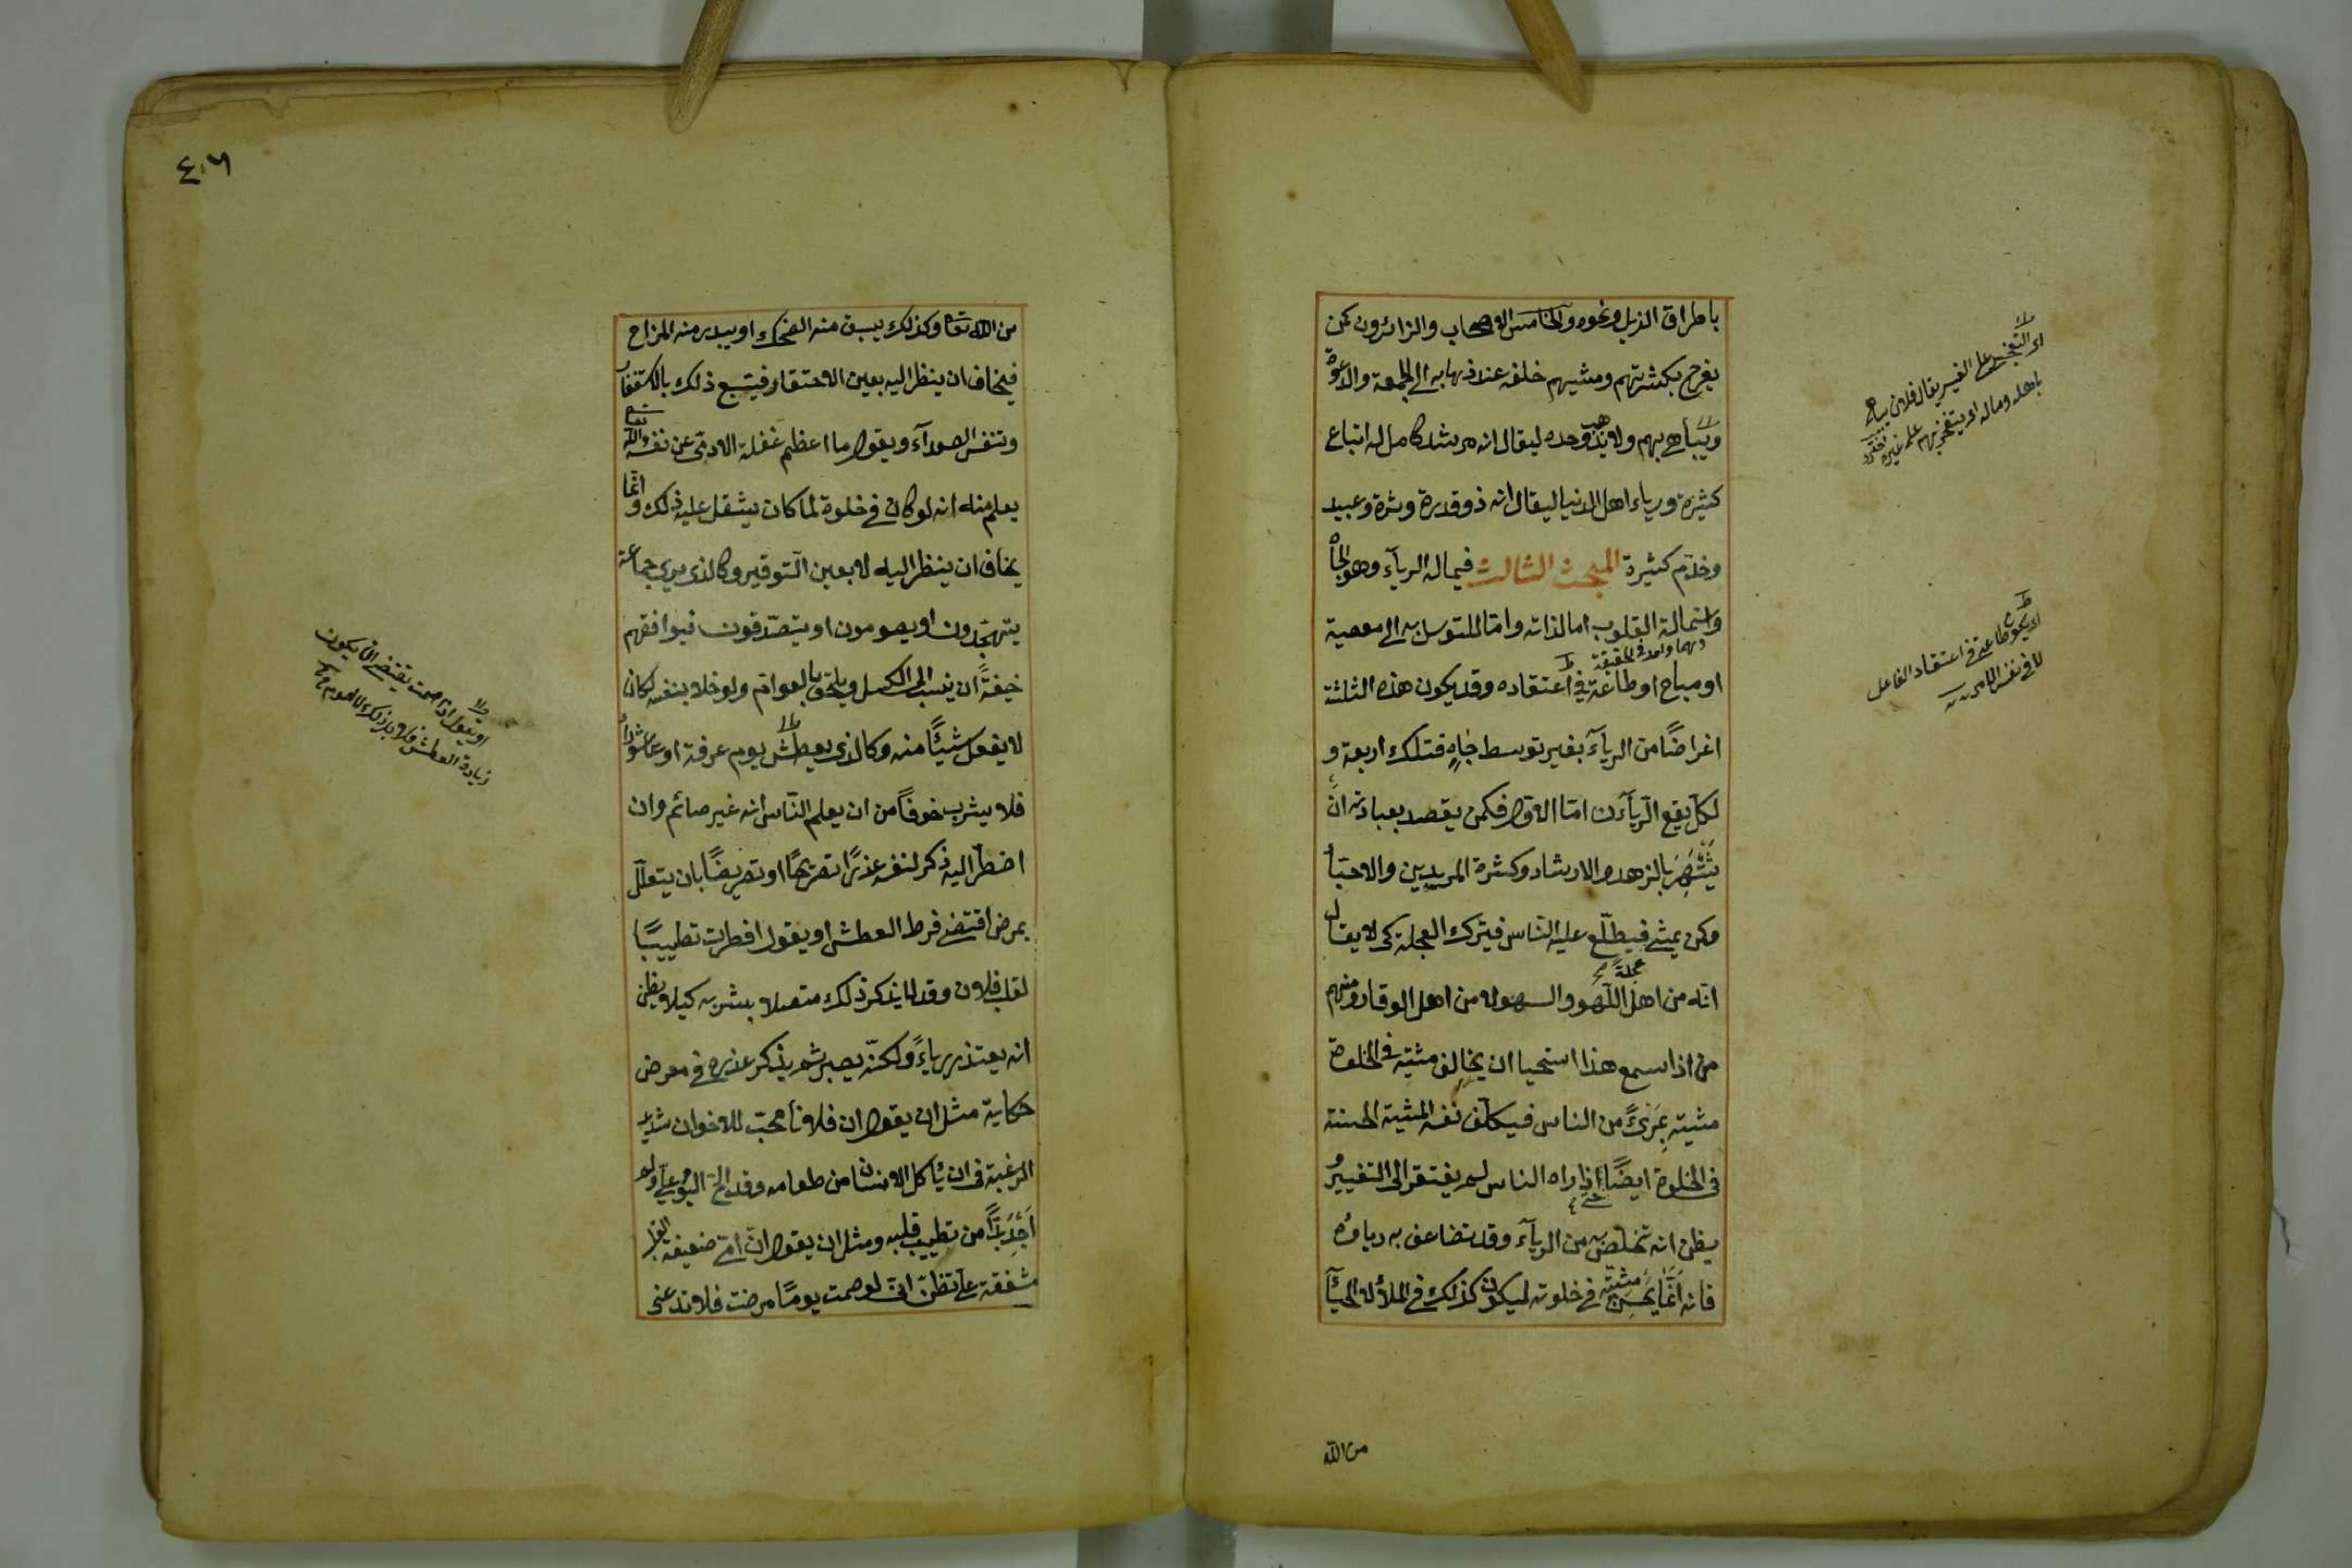 باطراق الذيل ونحوه والخامس الاصحاب والزائرون كمن
يفرح بكثرتهم ومشيهم خلفه عند ذهابه الى الجمعة والدعوة
ويباهى بهم ولا يذهب وحده ليقال انه مرشد كامل له اتباع
كثيرة ورياء اهل الدنيا ليقال انه ذو قدرة وثرة وعبيد
وخدّم كثيرة المبحث الثالث فيما له الريآء وهو الجاه
واستمالة القلوب اما لذاته واما للتوسل به الى معصية
او مباح او طاعة فى اعتقاده وقد يكون هذه الثلثة
اغراضًا من الريآء بغير توسط جاهٍ فتلك اربعة و
لكل يقع الريآءن امّا الاول فكمن يقصد بعبادته ان
يَشْتَهِرَ بالزهد والارشاد وكثرة المريدين والاحبآ
وكمن يمشى فيطّلع عليه الناس فيترك العجلة كى لا يقال
عجلة
انّه من اهل اللّهو والسهو لا من اهل الوقار ومنهم
من اذا سمع هذا استحيا ان يخالف مشيته فى الخلوة
مشيته بمرئً من الناس فيكلّف نفسه المشية الحسنة
فى الخلوة ايضًا حتى اذا راه الناس لم يفتقر الى التغيير و
يظن انه تخلّص به من الريآء وقد تضاعف به رياؤه
فانه انّما يحسن مشيته فى خلوته ليكون كذلك فى الملأ لا لحيآء
من الله
اى التفخر على الغير يقال فلان يباهى
باهله وماله اى يتفخر بهم على غيره
اى يكون طاعة فى اعتقاد الفاعل
لا فى نفس الامر
٤٠٦
من الله تعا وكذلك يسبق منه الضحك او يبدر منه المزاح
فيخاف ان ينظر اليه بعين الاحتقار فيتبع ذلك بالاستغفار
وتنفس الصعدآء ويقول ما اعظم غفلة الادمى عن نفسه والله تعا
يعلم منه انه لو كان فى خلوة لما كان يثقل عليه ذلك وانّما
يخاف ان ينظر اليه لا بعين التوقير وكالذى يرى جماعة
يتهجّدون او يصومون او يتصدّقون فيوافقهم
خيفةً ان ينسب الى الكسل ويلحق بالعوام ولو خلا بنفسه لكان
لا يفعل شيئًا منه وكالذى يعطش يوم عرفة او عاشوراء
فلا يشرب خوفًا من ان يعلم النّاس انه غير صائم وان
اضطرّ اليه ذكر لنفسه عذرًا تصريحًا او تعريضًا بان يتعلّل
بمرض اقتضى فرط العطش او يقول افطرت تطييبًا
لقلب فلان وقد لا يذكر ذلك متصلا بشربه كيلا يظن
انه يعتذر رياءً ولكنّه يصبر ثم يذكر عذره فى معرض
حكاية مثل ان يقول ان فلانا محبّ للاخوان شديد
الرغبة فى ان يأكل الانسان من طعامه وقد الحّ اليوم علىّ ولم
اجد بدًّا من تطييب قلبه ومثل ان يقول انّ امّى ضعيفة القلب
مشفقة علىّ تظنّ انى لو صمت يومًا مرضت فلا تدعنى
او يقول اذا صمت يقتضى ان يكون
زيادة العطش